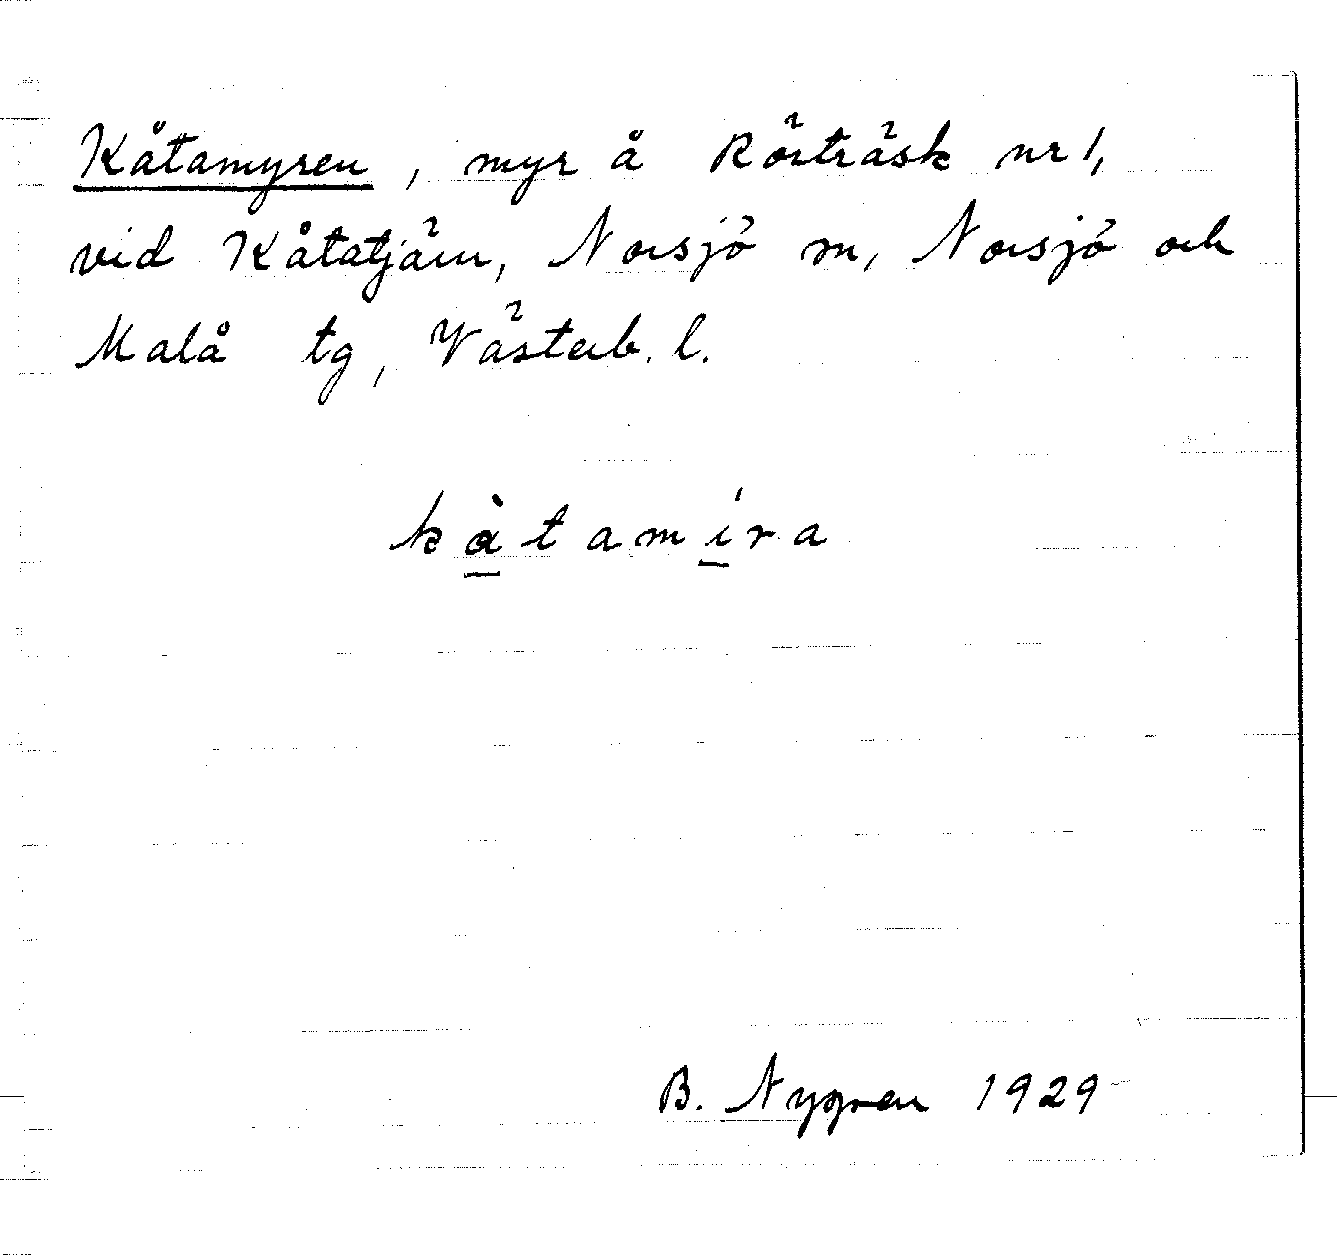 Kåtamyren, myr å Rörträsk nr 1,
vid Kåtatjärn, Norsjö sn, Norsjö och
Malå tg, Västerb. l.
kàtamíra
B. Nygren 1929